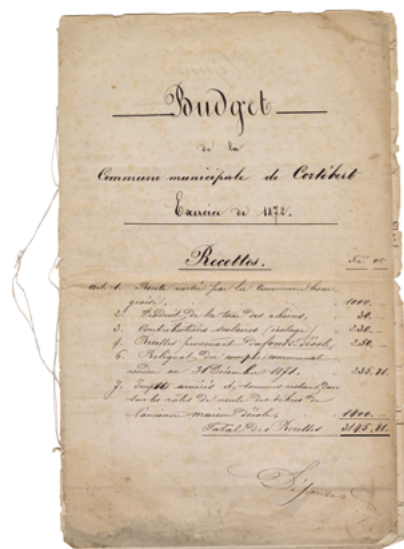 Budget
de la
Commune municipale de Cortébert
Exercice de 1872.
Recettes.
Art. 1. Rente versée par la Commune bour
geoise, 1000.—
2. Produit de la taxe des chiens, 30.—
3. Contributions scolaires (écolage) 230.—
4. Recettes provenant du fonds d'école, 250.—
6. Reliquat du compte communal
rendu au 31 Décembre 1871. 235.81.
7. Impôts arriérés et sommes restant dues
sur les rôles de vente des
l'ancienne maison d'école, 1400.—
Total des Recettes 3145.81.
Dépenses